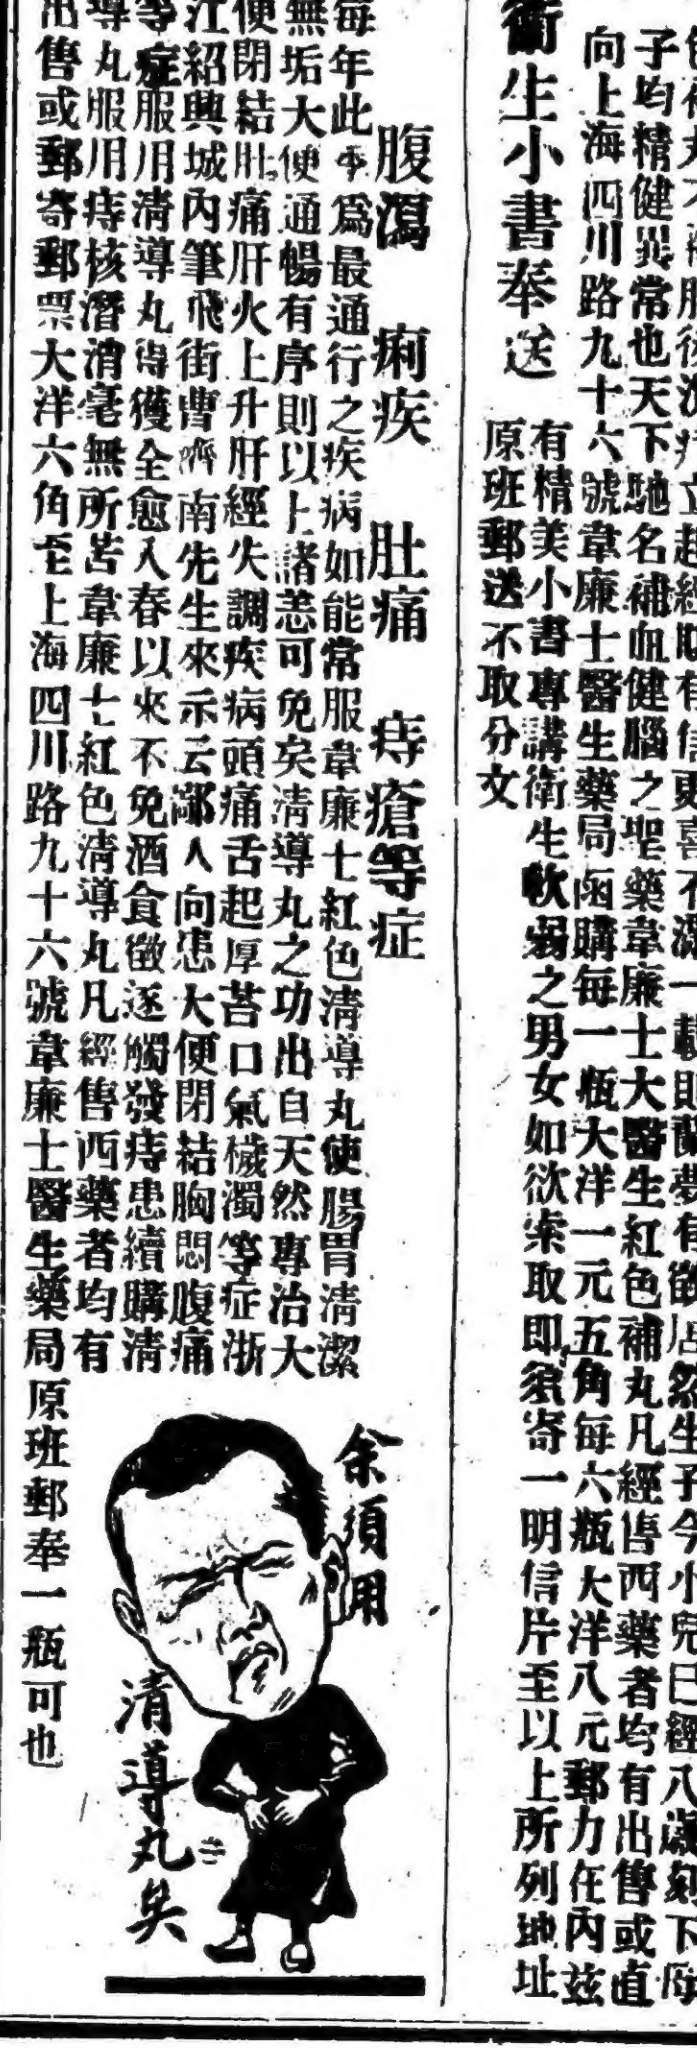 立起
子均精健異常也天下馳名補血健腦之聖藥韋廉士大醫生紅色補丸凡經售西藥者均有出售或直
向上海四川路九十六號韋廉士醫生藥局函購每一瓶大洋一元五角每六瓶大洋八元郵力在內茲
衛生小書奉送
有精美小書專講衛生軟弱之男女如欲索取即須寄一明信片至以上所列地址
原班郵送不取分文
腹瀉 痢疾 肚痛 痔瘡等症
每年此季爲最通行之疾病如能常服韋廉士紅色清導丸使腸胃清潔
無垢大便通暢有序則以上諸恙可免矣清導丸之功出自天然專治大
便閉結肚痛肝火上升肝經失調疾病頭痛舌起厚苔口氣穢濁等症浙
江紹興城內筆飛街曹濟南先生來示云鄙人向患大便閉結胸悶腹痛
等症服用清導丸得獲全愈入春以來不免酒食徵逐觸發痔患續購清
導丸服用痔核潛消毫無所苦韋廉士紅色清導丸凡經售西藥者均有
出售或郵寄郵票大洋六角至上海四川路九十六號韋廉士醫生藥局原班郵奉一瓶可也
余須用
清導丸矣